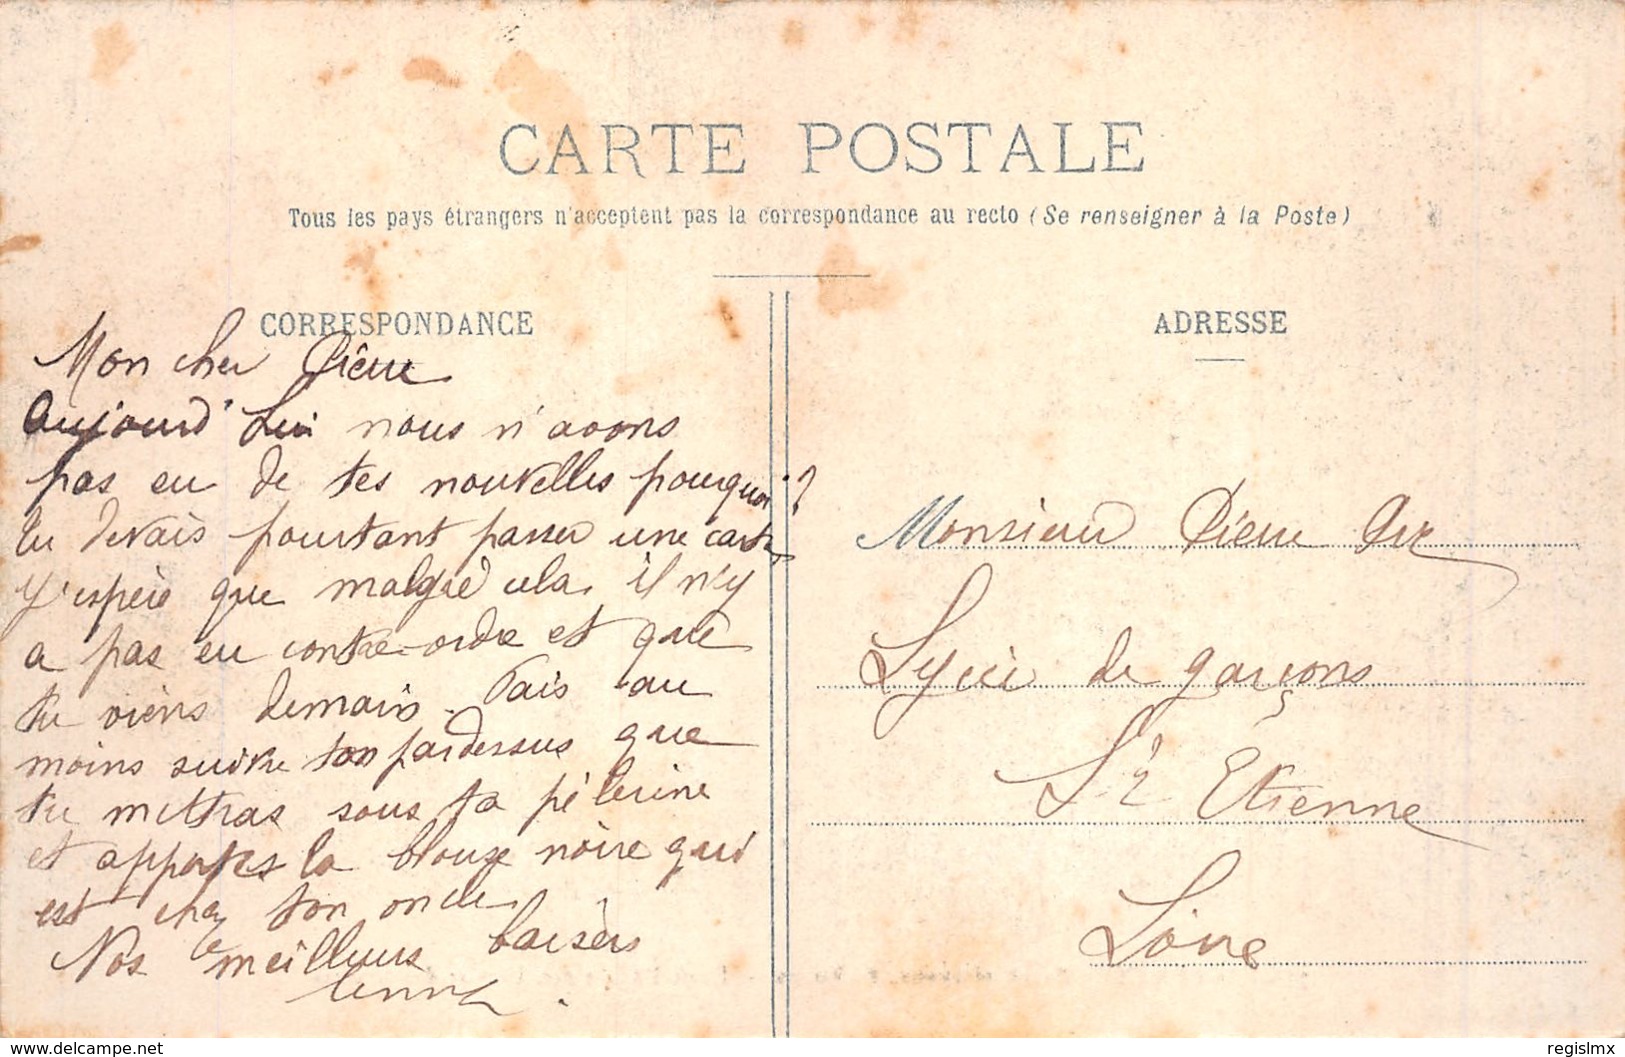 CARTE POSTALE
Tous les pays étrangers n'acceptent pas la correspondance au recto (Se renseigner à la Poste)
CORRESPONDANCE
Mon cher Pierre
Aujourd'hui nous n'avons
pas eu de tes nouvelles pourquoi ?
tu devais pourtant passer une carte
J'espère que malgré cela il n'y
a pas eu contre-ordre et que
tu viens demain. Fais au
moins suivre ton pardessus que
tu mettras sous ta pèlerine
et apportes la blouse noire qui
est chez ton oncle.
Nos meilleurs baisers
ADRESSE
Monsieur Pierre
Lycée de garçons
St Etienne
Loire
regislmx
www.delcampe.net